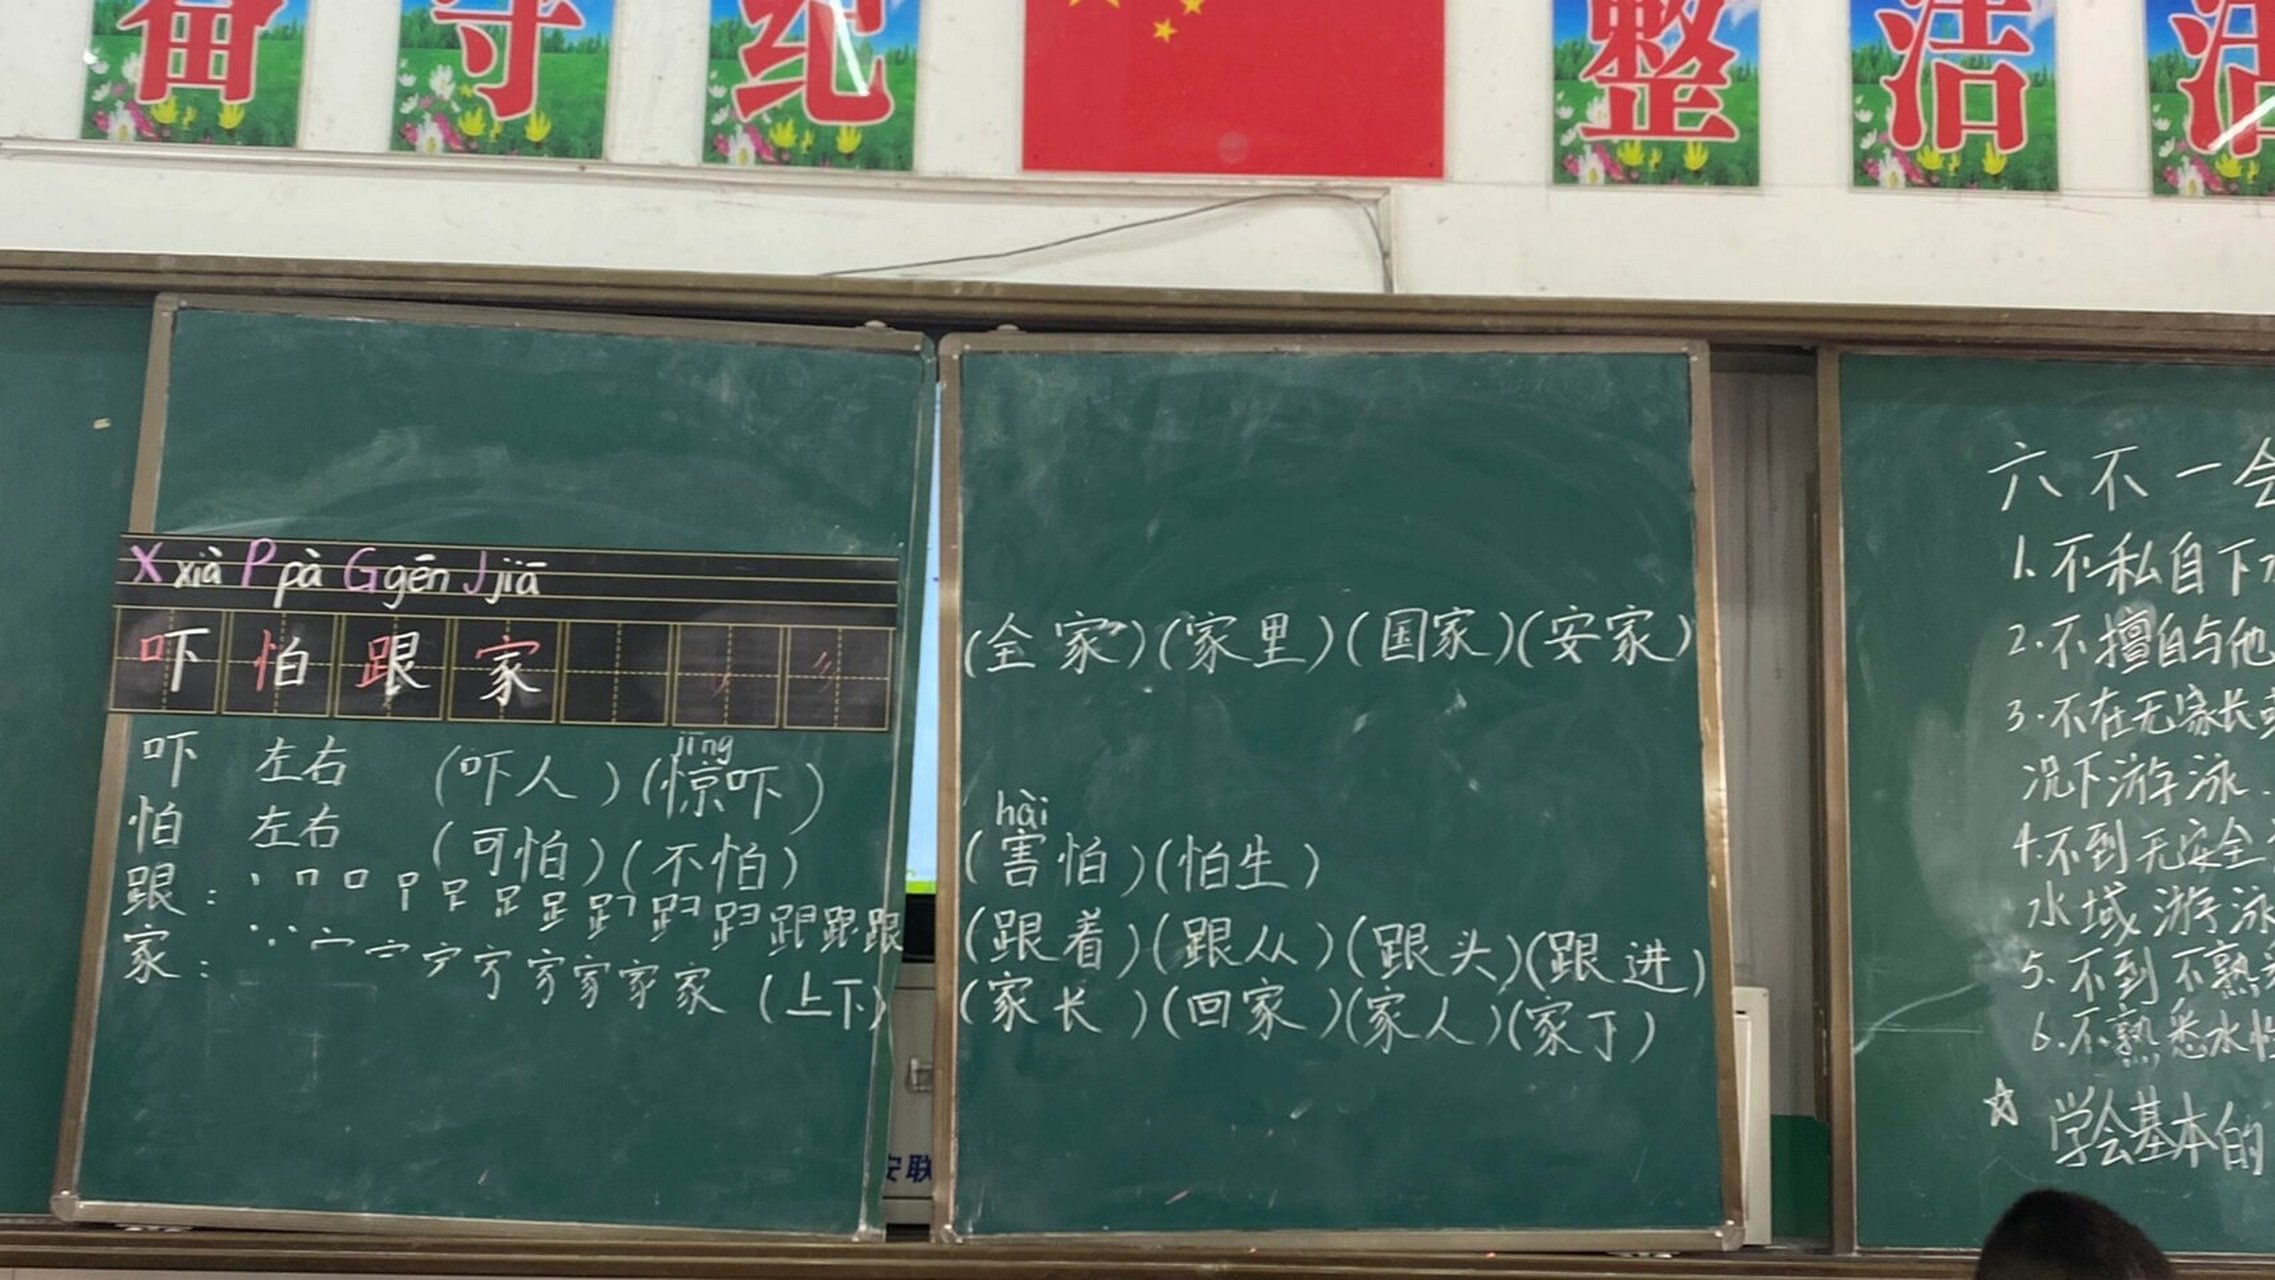 守 纪 整 洁
X xià P pà G gēn J jiā
吓 怕 跟 家
吓 左右 (吓人)(惊吓)
jīng
怕 左右 (可怕)(不怕)
跟:
家: (上下)
(全家)(家里)(国家)(安家)
hài
(害怕)(怕生)
(跟着)(跟从)(跟头)(跟进)
(家长)(回家)(家人)(家丁)
安联
六不一会
1.不私自下水
2.不擅自与他
3.不在无家长或
况下游泳.
4.不到无安全
水域游泳
5.不到不熟悉
6.不熟悉水性
☆ 学会基本的